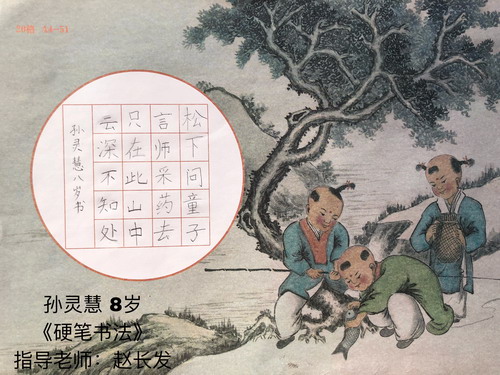 28格 14-51
松下问童子
言师采药去
只在此山中
云深不知处
孙灵慧八岁书
孙灵慧 8岁
《硬笔书法》
指导老师：赵长发